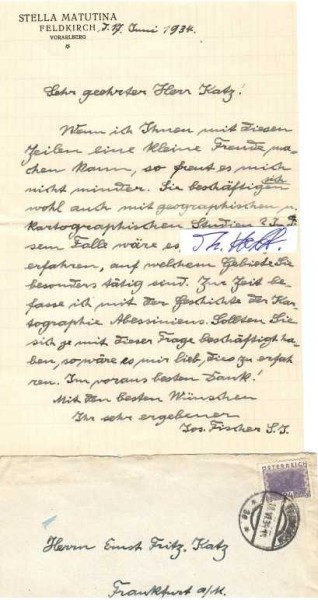 STELLA MATUTINA
FELDKIRCH,
VORARLBERG
17. Juni 1934.
Sehr geehrter Herr Katz!
Wenn ich Ihnen mit diesen
Zeilen eine kleine Freude ma-
chen kann, so freut es mich
nicht minder. Sie beschäftigen sich
wohl auch mit geographischen u.
kartographischen Studien
sem Falle wäre es
erfahren, auf welchem Gebiete Sie
besonders tätig sind. Zur Zeit be-
fasse ich mit der Geschichte der Kar-
tographie Abessiniens. Sollten Sie
sich je mit dieser Frage beschäftigt ha-
ben, so wäre es mir lieb, dies zu erfah-
ren. Im voraus besten Dank!
Mit den besten Wünschen
Ihr sehr ergebener
Jos. Fischer S. J.
ÖSTERREICH
Herrn Ernst Fritz Katz
Frankfurt a/M.